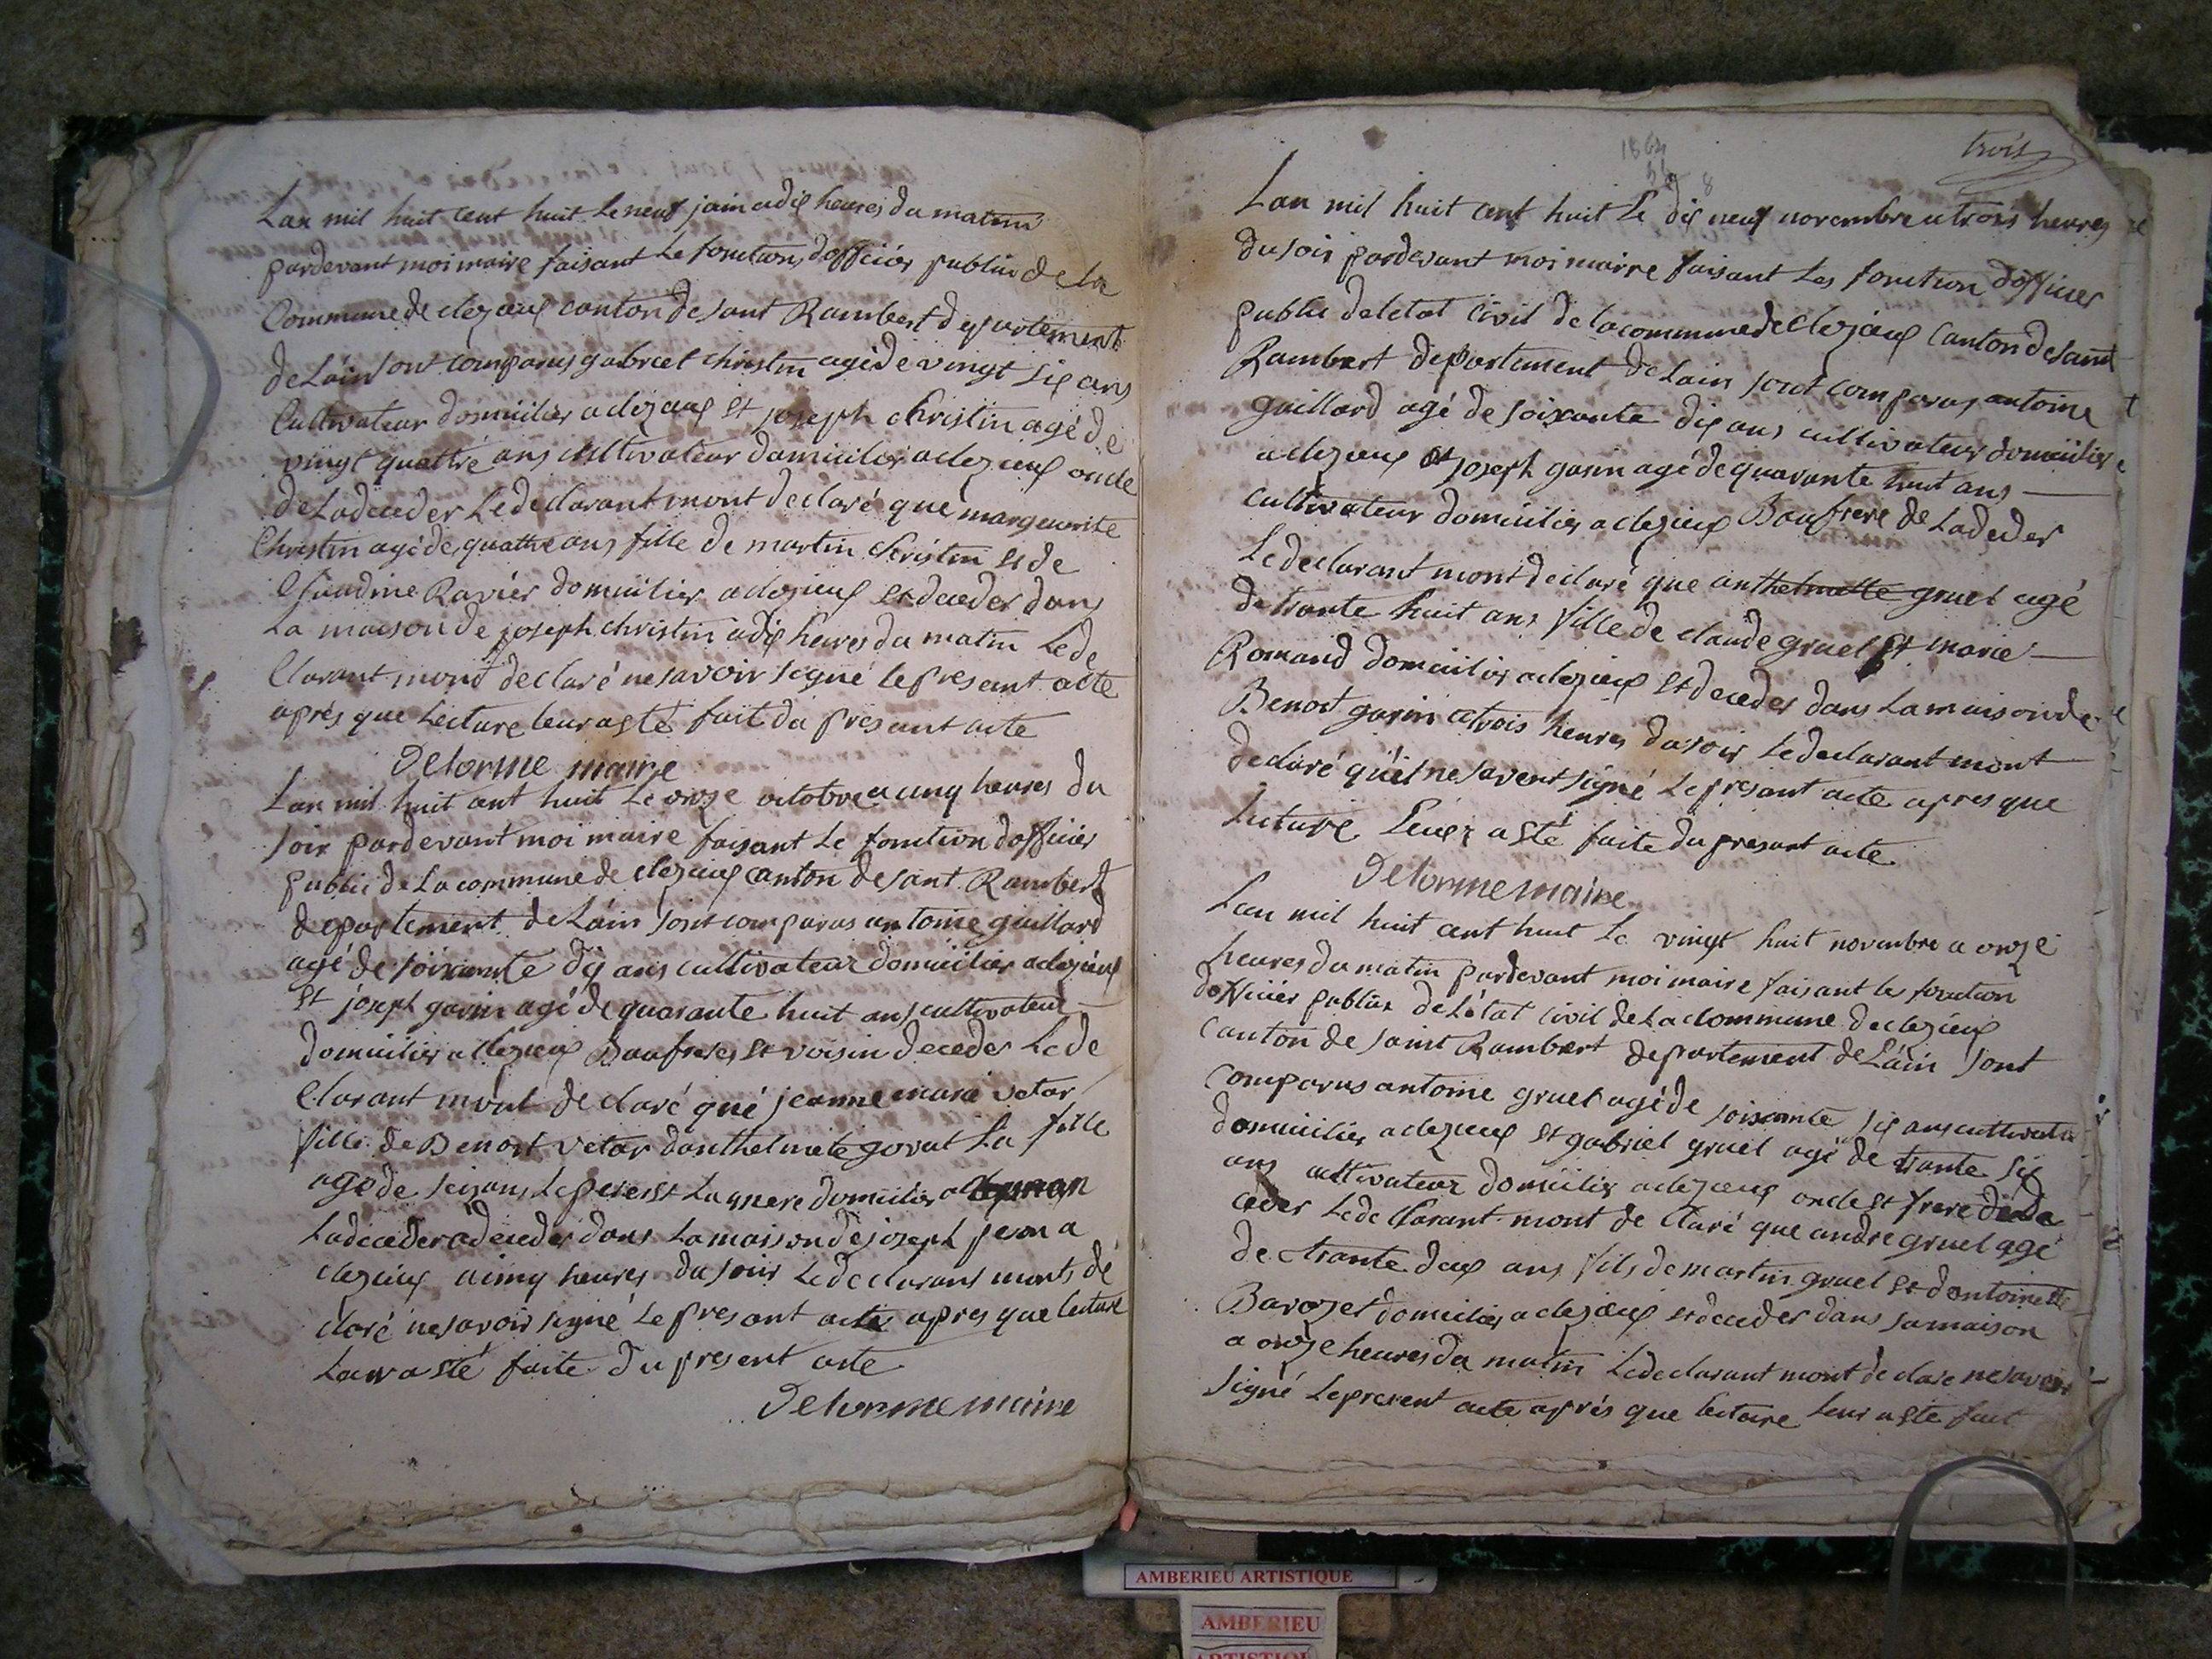 Lan mil huit cent huit Le neuf juin a dix heures du matin
pardevant moi maire faisant Le fonction dofficier publix de La
Commune de clezieux canton de sant Rambert departement
de Lain sont comparus gabriel christin agé de vingt six ans
Cultivateur domicilier a clezieux et joseph christin agé de
vingt quattre ans cultivateur domicilier a clezieux oncle
de Ladeceder Le declarant mont declaré que marguerite
Christin agé de quattre ans fille de martin christin et de
Claudine Ravier domicilier a clezieux et deceder dans
La maison de joseph christin a dix heures du matin Le de
Clarant mont declaré ne savoir signé le present acte
aprés que Lecture leur a sté fait du present acte
Delorme maire
Lan mil huit cent huit Le onze octobre a cinq heures du
soir pardevant moi maire faisant Le fonction dofficier
public de La commune de clezieux canton de sant Rambert
departement de Lain sont comparus antoine gaillard
agé de soixante dix ans cultivateur domicilier a clezieux
et joseph garin agé de quarante huit ans cultivateur
domicilier a clezieux Baufreres et voisin deceder Le de
Clarant mont declaré qué jeanne marie vetar
fille de Benoit vetar danthelmete goval La fille
agé de seizans Le pere et La mere domicilier a
Ladeceder a deceder dans La maison de joseph a
clezieux a cinq heures du soir Le declarant monts de
claré ne savoir signé Le present acte apres que lecture
Leur a sté faite du present acte
Delorme maire
trois
Lan mil huit cent huit Le dix neuf novembre a trois heures
du soir pardevant moi maire faisant Les fonction dofficier
public de letat civil de la commune de clezieux Canton de sant
Rambert departement de Lain sont comparus antoine
gaillard agé de soixante dix ans cultivateur domicilier
a clezieux et joseph garin agé de quarante huit ans
cultivateur domicilier a clezieux Baufrere de Ladeceder
Le declarant mont declaré que anthelmette gruel agé
de trante huit ans fille de claude gruel et marie
Romand domicilier a clezieux et deceder dans La maison de
Benoit garin a trois heures du soir Le declarant mont
declaré quil ne savent signé Le present acte apres que
lecture Leur a sté faite du present acte
Delorme maire
Lan mil huit cent huit Le vingt huit novembre a onze
heures du matin pardevant moi maire faisant les fonction
dofficier publix de Létat civil de La commune de clezieux
Canton de saint Rambert departement de Lain sont
comparus antoine gruel agé de soixante six ans cultivateur
domicilier a clezieux et gabriel gruel agé de trante six
ans cultivateur domicilier a clezieux oncle et frere de de
ceder Le declarant mont declaré que andre gruel agé
de trante deux ans fils de martin gruel et dantoinette
Barozet domicilier a clezieux et deceder dans sa maison
a onze heures du matin Le declarant mont declare ne savoir
signé Le present acte aprés que lecture leur a sté fait
AMBERIEU ARTISTIQUE
AMBERIEU
ARTISTIQUE